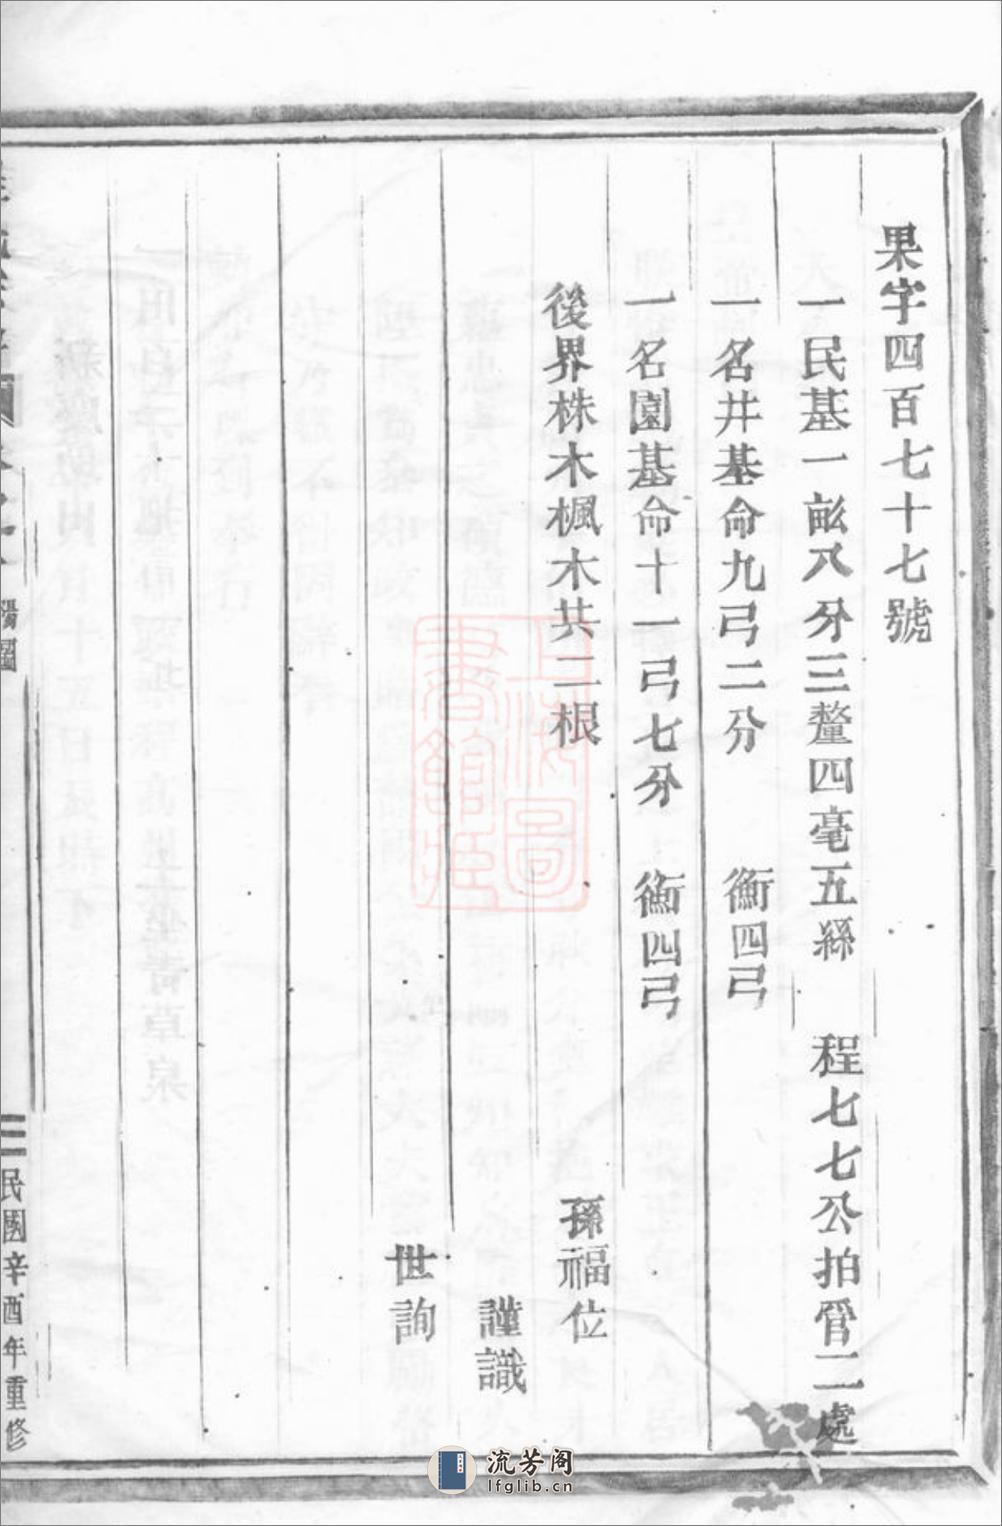 果字四百七十七號
一民基一畝八分三釐四毫五絲 程七七公拍管二處
一名井基命九弓二分 衡四弓
一名園基命十一弓七分 衡四弓
後界株木楓木共二根 孫福位
謹識
世詢
陽圖
民國辛酉年重修
上海圖書館藏
流芳阁
lfglib.cn